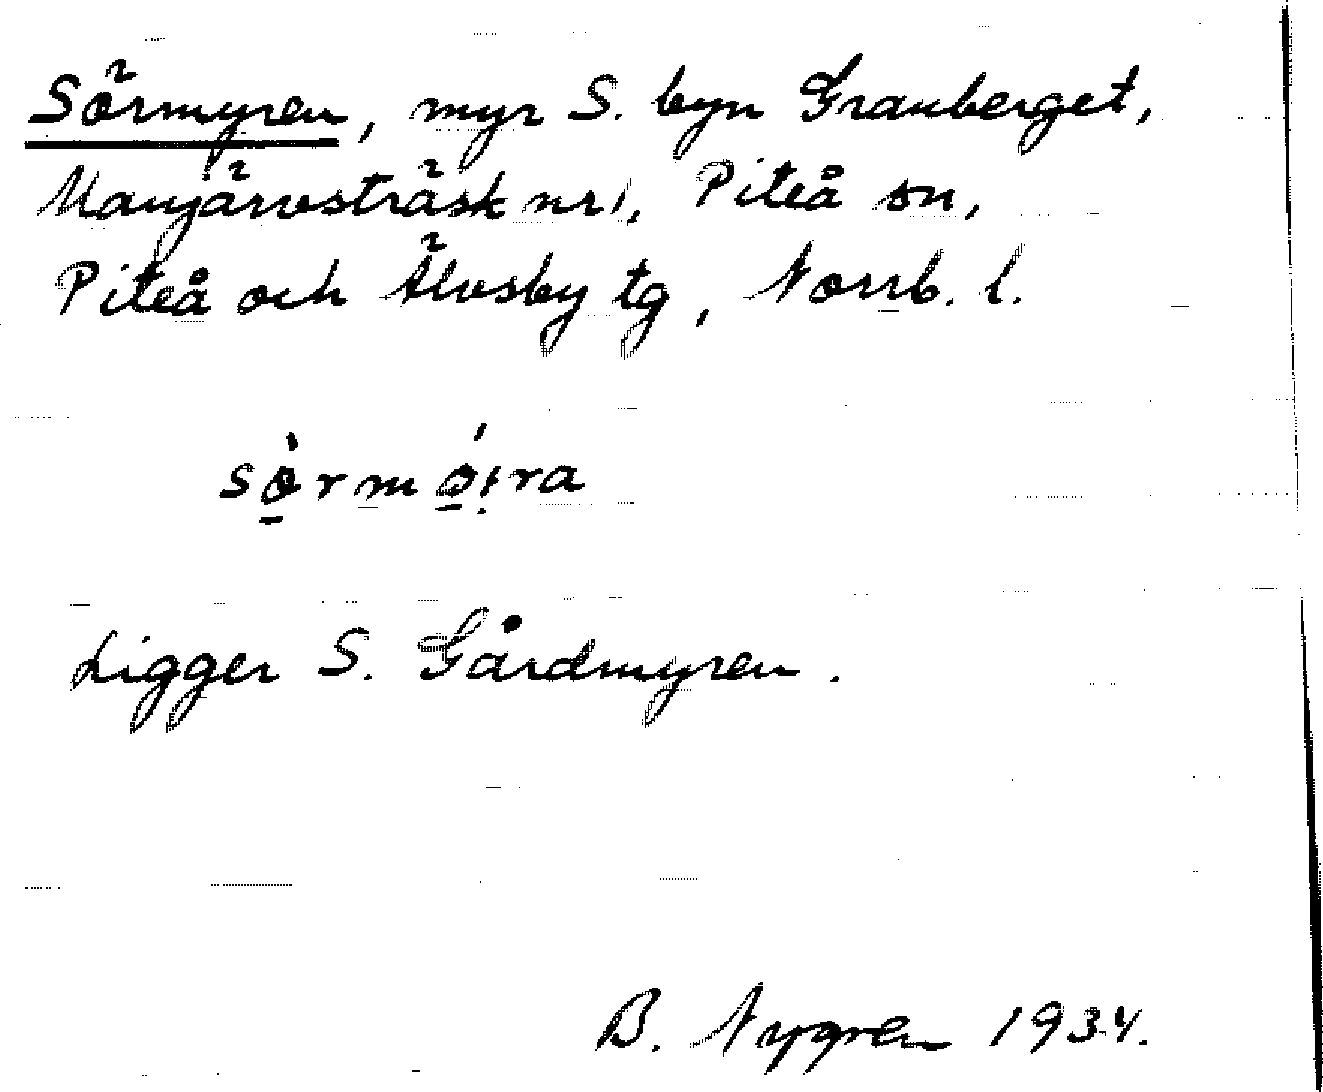 Sörmyren, myr S. byn Granberget,
Manjärvsträsk nr 1, Piteå sn,
Piteå och Älvsby tg, Norrb. l.
sørmøıra
Ligger S. Gårdmyren.
B. Nygren 1934.